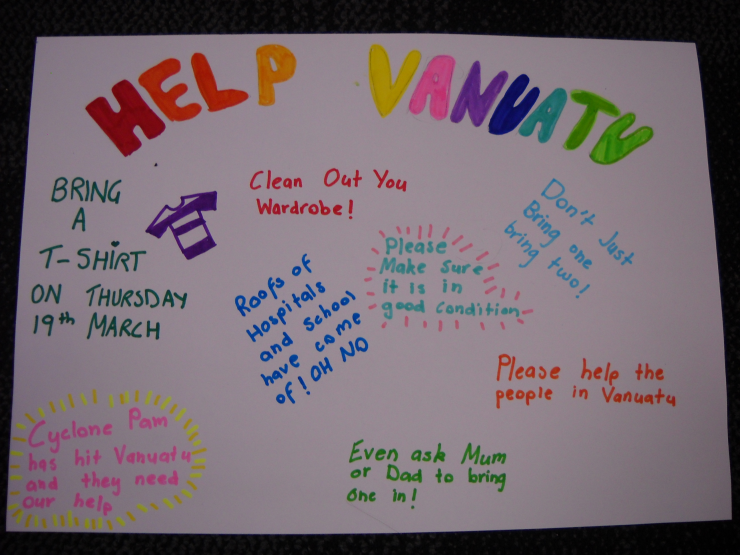 HELP VANUATU
BRING
A
T-SHIRT
ON THURSDAY
19th MARCH
Clean Out You
Wardrobe!
Don't Just
Bring one
bring two!
Please
Make Sure
it is in
good condition
Roofs of
Hospitals
and School
have come
of! OH NO
Please help the
people in Vanuatu
Cyclone Pam
has hit Vanuatu
and they need
our help
Even ask Mum
or Dad to bring
one in!